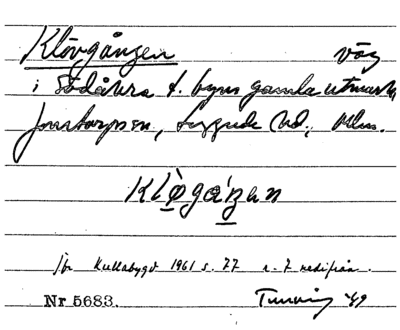 Klövgången väg
i Södåkra t. byns gamla utmark,
Jonstorps sn, Luggude hd, Mlm.
Klø̀gáŋan
jfr Kullabygd 1961 s. 77 r. 7 nedifrån.
Nr 5683. '49